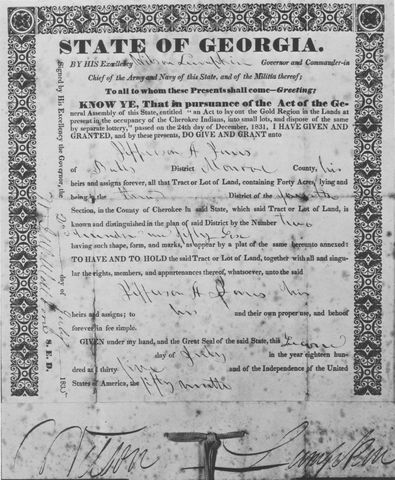 STATE OF GEORGIA.
BY HIS Excellency Wilson Lumpkin Governor and Commander-in
Chief of the Army and Navy of this State, and of the Militia thereof;
To all to whom these Presents shall come—Greeting;
KNOW YE, That in pursuance of the Act of the Ge-
neral Assembly of this State, entitled "an Act to lay out the Gold Region in the Lands at
present in the occupancy of the Cherokee Indians, into small lots, and dispose of the same
by separate lottery," passed on the 24th day of December, 1831, I HAVE GIVEN AND
GRANTED, and by these presents, DO GIVE AND GRANT unto
Jefferson A. Jones
of District Monroe County, his
heirs and assigns forever, all that Tract or Lot of Land, containing Forty Acres, lying and
being in the District of the fourth
Section, in the County of Cherokee in said State, which said Tract or Lot of Land, is
known and distinguished in the plan of said District by the Number Two
Hundred fifty six
having such shape, form, and marks, as appear by a plat of the same hereunto annexed:
TO HAVE AND TO HOLD the said Tract or Lot of Land, together with all and singu-
lar the rights, members, and appurtenances thereof, whatsoever, unto the said
Jefferson A Jones his
heirs and assigns; to his and their own proper use, and behoof
forever in fee simple.
GIVEN under my hand, and the Great Seal of the said State, this Second
day of July in the year eighteen hun-
dred and thirty five and of the Independence of the United
States of America, the fifty ninth
Signed by His Excellency the Governor, the
day of July 1835
S. E. D.
Wilson Lumpkin